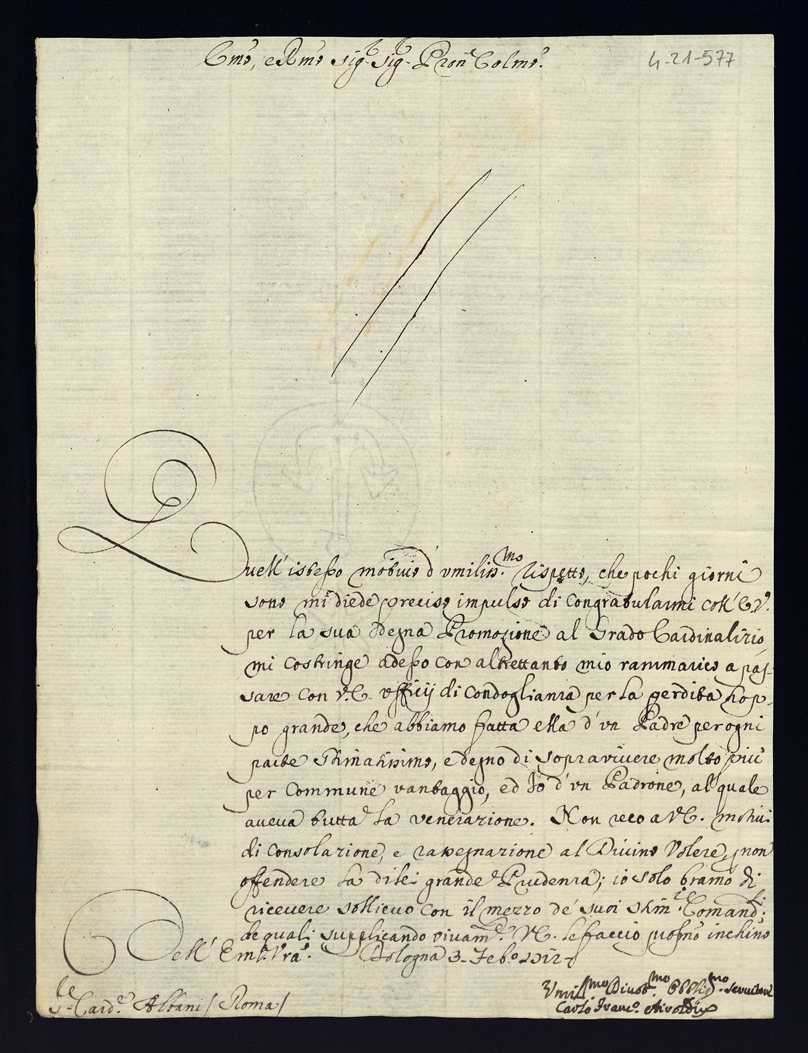 Emo, e Rmo Sigr Sigr Pron Colmo.
4-21-577
Quell' istesso motivo d' vmiliss.mo rispetto, che pochi giorni
sono mi diede preciso impulso di Congratularmi coll' E.V.
per la sua degna Promozione al Grado Cardinalizio
mi costringe adesso con altrettanto mio rammarico a pas-
sare con V.E. vfficij di Condoglianza per la perdita trop-
po grande, che abbiamo fatta ella d' vn Padre per ogni
parte Stimatissimo, e degno di sopravivere molto più
per Commune vantaggio, ed Io d' vn Padrone, al quale
aueua tutta la venerazione. Non reco a V.E. motivi
di Consolazione, e rassegnazione al Diuino Volere, p non
offendere la di lei grande Prudenza; io solo bramo di
riceuere sollieuo con il mezzo de' suoi stim.i Comandi:
de quali supplicando vivam.e V.E. le faccio profmo inchino
Dell' Em.V.ra. Bologna 3. Febo 1712
Sr Card.e Albani / Roma /
Vmil.mo Diuot.mo Obblig.mo Seruitore
Carlo Franco